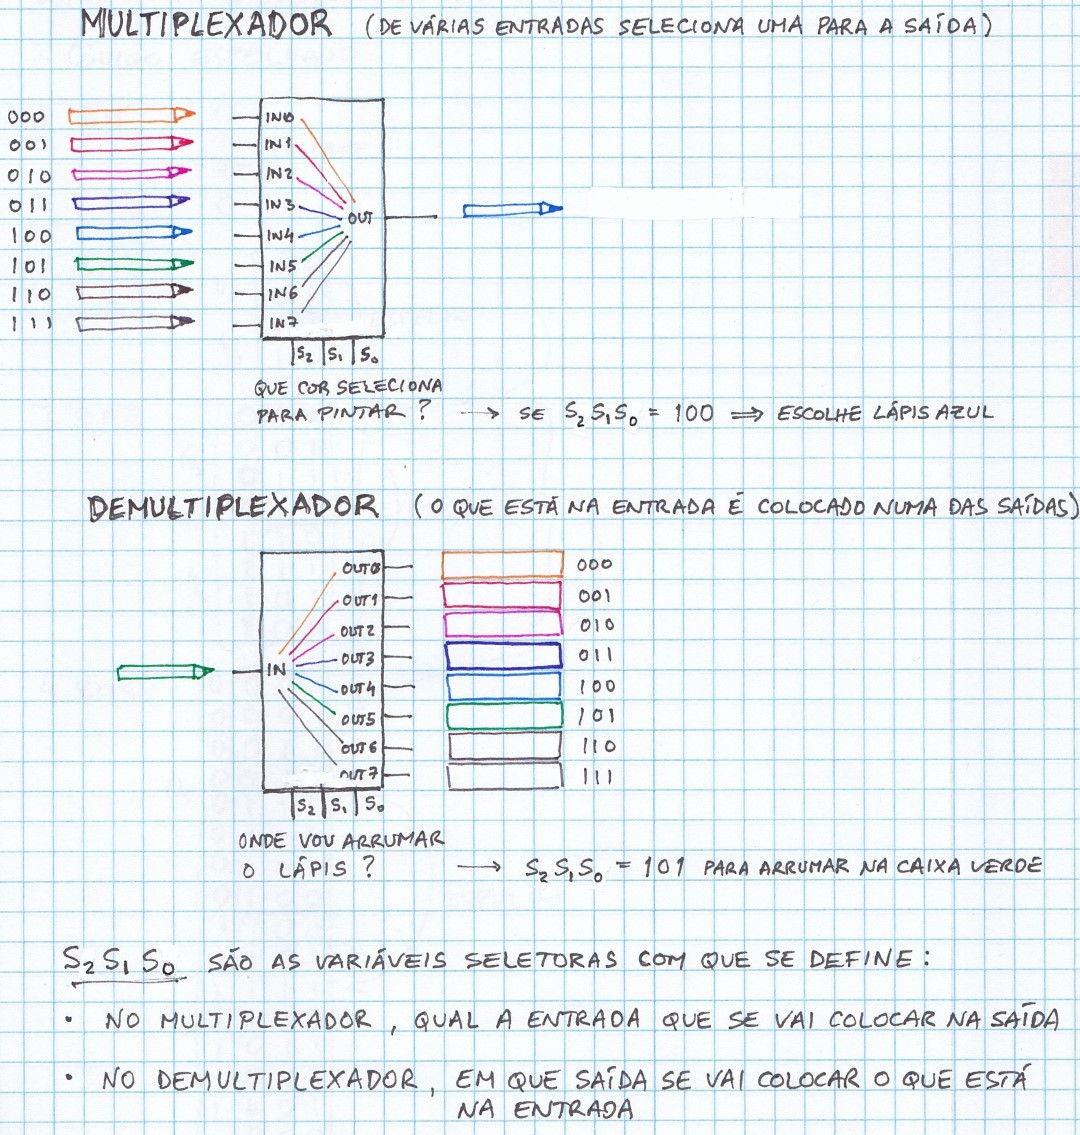 MULTIPLEXADOR (DE VÁRIAS ENTRADAS SELECIONA UMA PARA A SAÍDA)
000 IN0
001 IN1
010 IN2
011 IN3 OUT
100 IN4
101 IN5
110 IN6
111 IN7
S2 S1 S0
QUE COR SELECIONA
PARA PINTAR ? → SE S2 S1 S0 = 100 ⇒ ESCOLHE LÁPIS AZUL
DEMULTIPLEXADOR (O QUE ESTÁ NA ENTRADA É COLOCADO NUMA DAS SAÍDAS)
OUT0 000
OUT1 001
OUT2 010
IN OUT3 011
OUT4 100
OUT5 101
OUT6 110
OUT7 111
S2 S1 S0
ONDE VOU ARRUMAR
O LÁPIS ? → S2 S1 S0 = 101 PARA ARRUMAR NA CAIXA VERDE
S2 S1 S0 SÃO AS VARIÁVEIS SELETORAS COM QUE SE DEFINE :
• NO MULTIPLEXADOR , QUAL A ENTRADA QUE SE VAI COLOCAR NA SAÍDA
• NO DEMULTIPLEXADOR , EM QUE SAÍDA SE VAI COLOCAR O QUE ESTÁ
NA ENTRADA